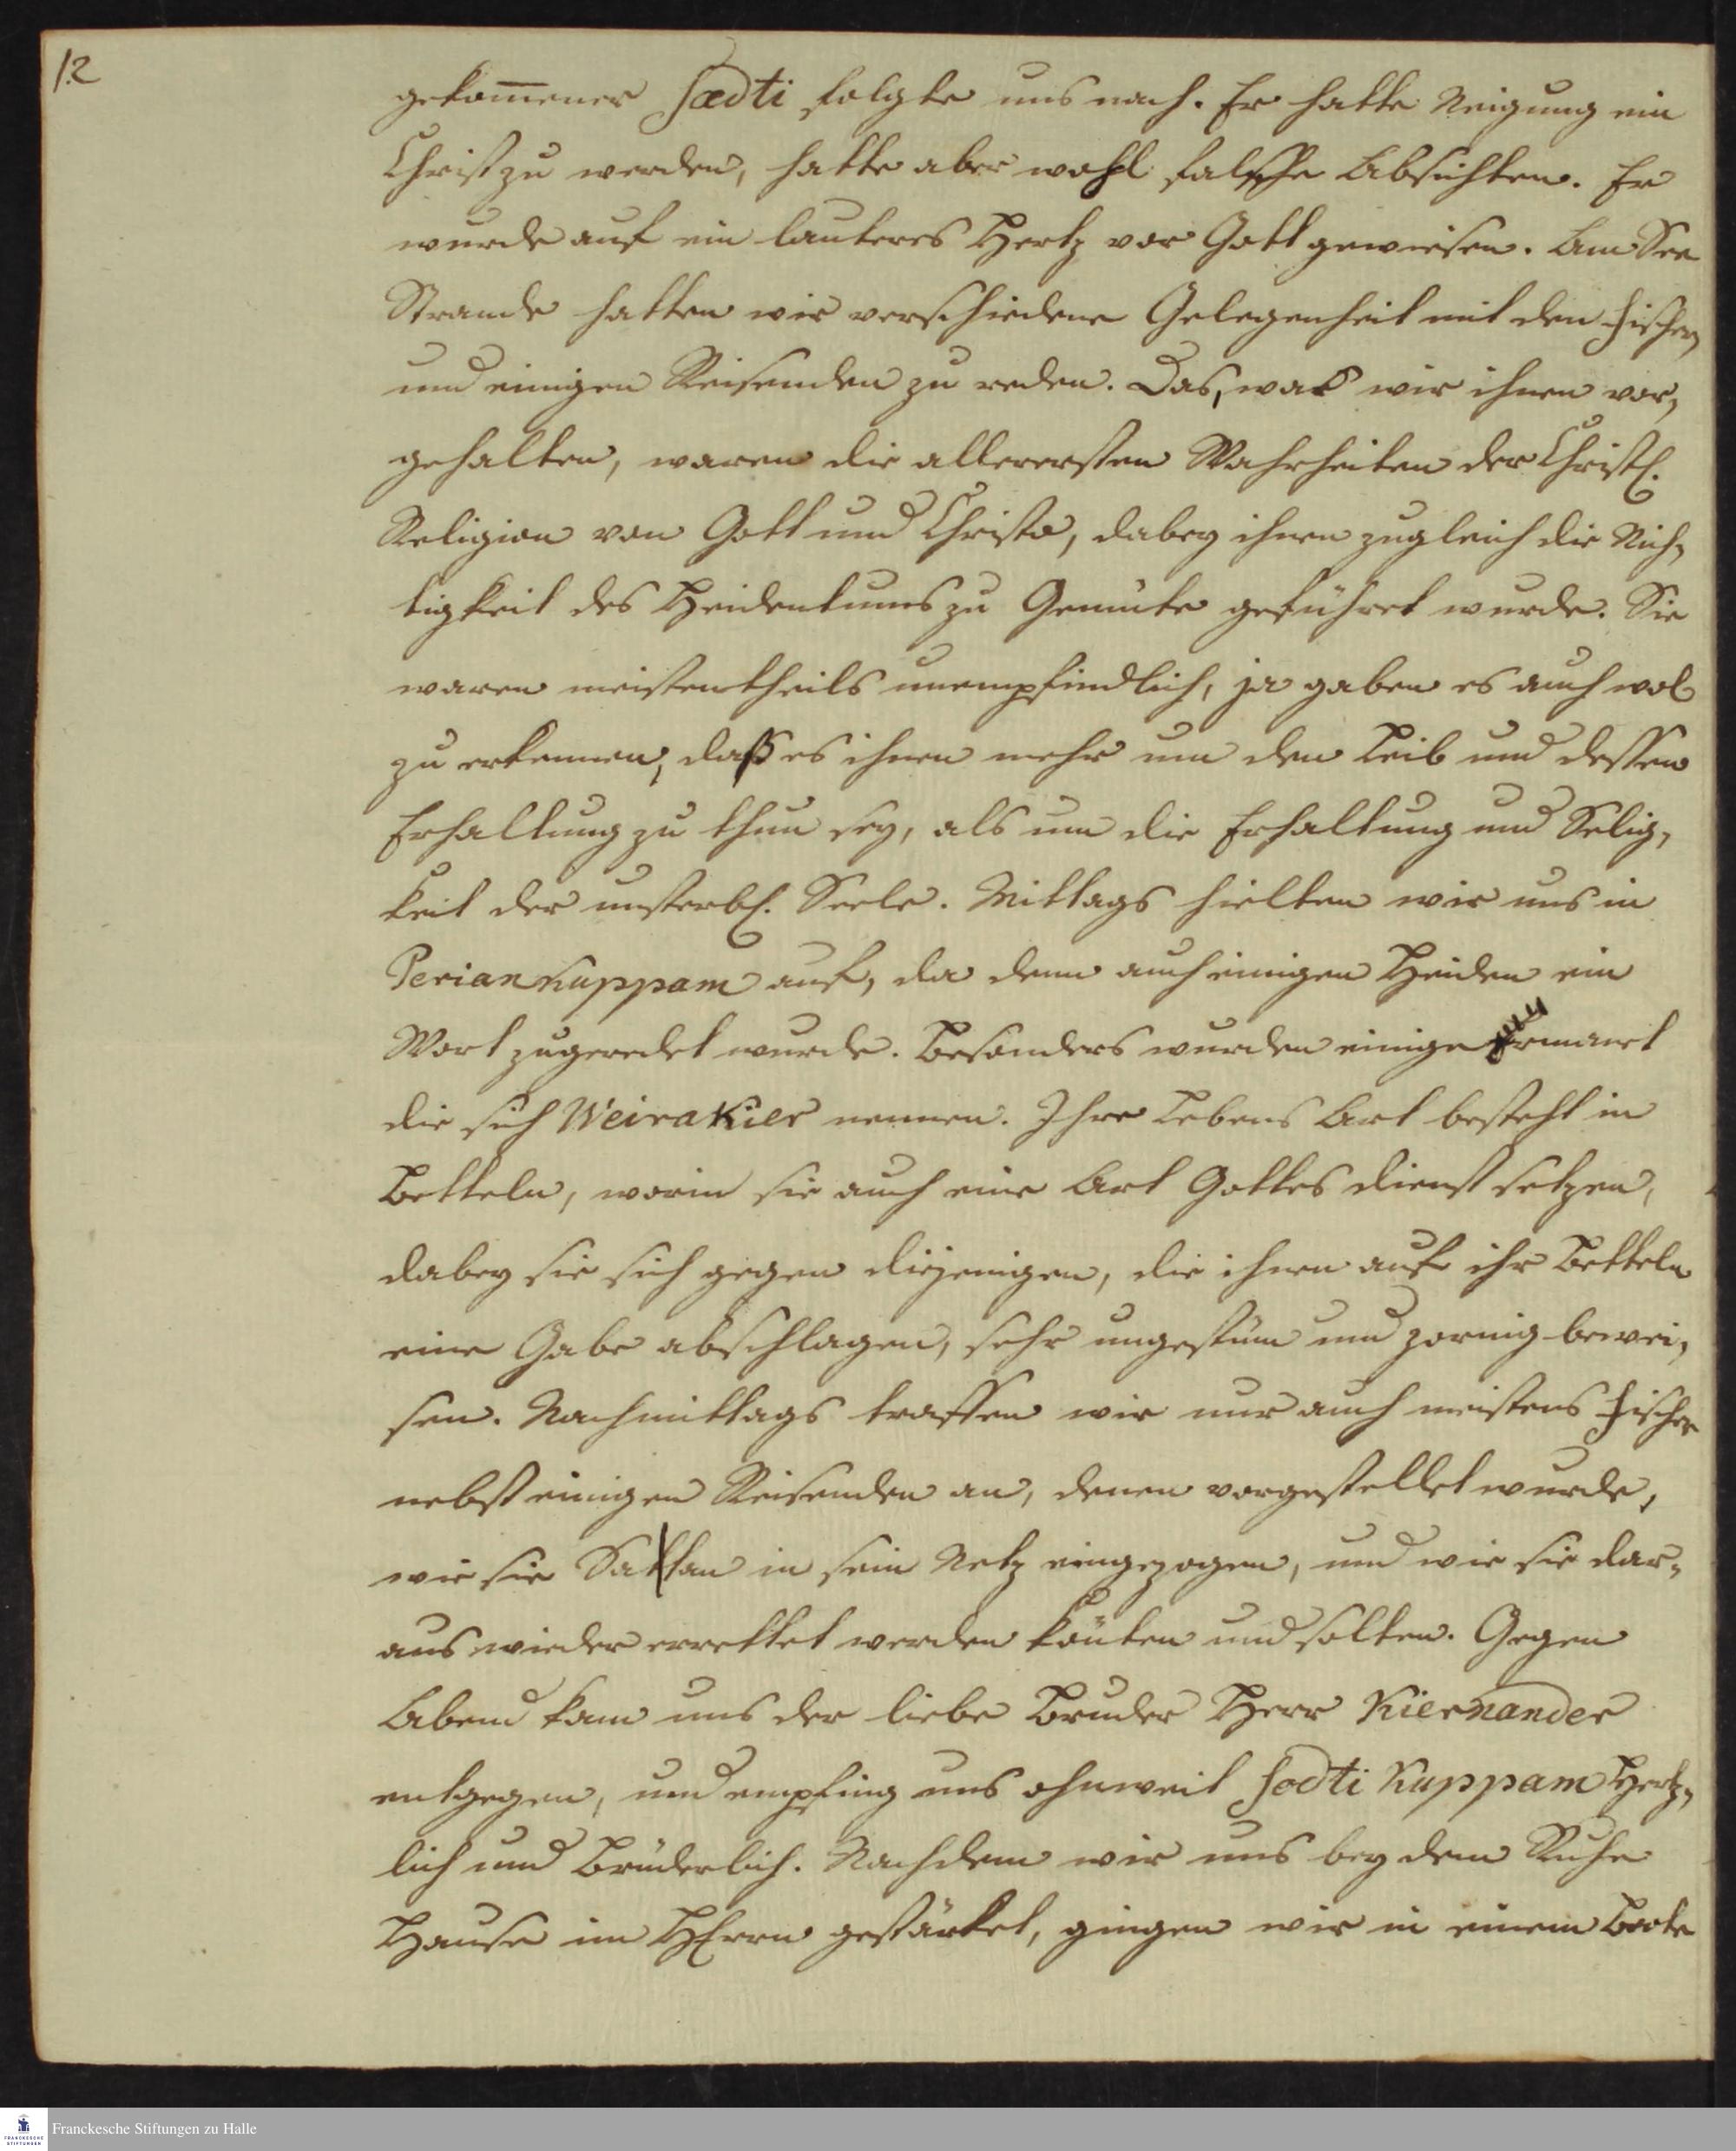 12
gekom̅ener Sædti folgte uns nach. Er hatte Neigung ein
Christ zu werden, hatte aber wohl falsche Absichten. Er
wurde auf ein lauteres Hertz vor Gott gewiesen. Am See
Strande hatten wir verschiedene Gelegenheit mit den Fischern
und einigen Reisenden zu reden. Das, was wir ihnen vor,
gehalten, waren die allerersten Wahrheiten der Christl.
Religion von Gott und Christo, dabey ihnen zugleich die Nich,
tigkeit des Heidentums zu Gemüte geführet wurde. Sie
waren meistentheils unempfindlich, ja gaben es auch wol
zu erkennen, daß es ihnen mehr um den Leib und dessen
Erhaltung zu thun sey, als um die Erhaltung und Selig,
keit der unsterbl. Seele. Mittags hielten wir uns in
Periankuppam auf, da denn auch einigen Heiden ein
Wort zugeredet wurde. Besonders wurden einige ermant
die sich Weirakier nennen. Ihre Lebens Art besteht in
Betteln, worin sie auch eine Art Gottes dienst setzen,
dabey sie sich gegen diejenigen, die ihnen auf ihr Betteln
eine Gabe abschlagen, sehr ungestüm und zornig bewei,
sen. Nachmittags traffen wir nur auch meistens Fischer
nebst einigen Reisenden an, denen vorgestellet wurde,
wie sie Sattan in sein Netz eingezogen, und wie sie dar,
aus wieder errettet werden könten und solten. Gegen
Abend kam uns der liebe Bruder Herr Kiernander
entgegen, und empfing uns ohnweit Sodti Kuppam Hertz,
lich und Brüderlich. Nachdem wir uns bey dem Ruhe
Hause im HErrn gestärket, gingen wir in einem Bote
Franckesche Stiftungen zu Halle